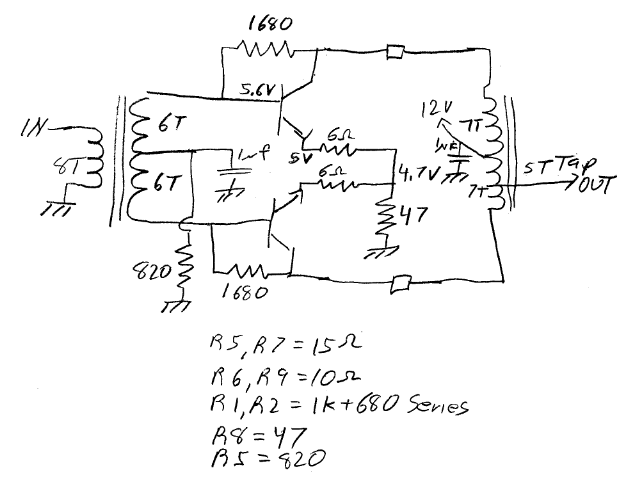 1680
5.6V
12V
IN
6T
7T
6Ω
8T
1uf
5V
1uf
4.7V
5T Tap
6T
6Ω
7T
OUT
47
820
1680
R5, R7 = 15Ω
R6, R9 = 10Ω
R1, R2 = 1K+680 Series
R8 = 47
R5 = 820